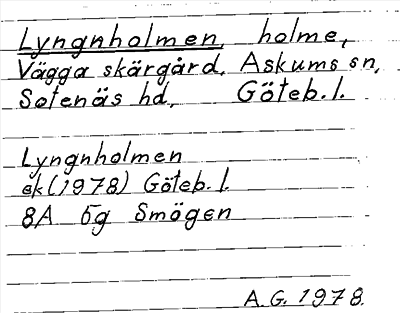 Lyngnholmen, holme,
Vägga skärgård, Askums sn,
Sotenäs hd, Göteb. l.
Lyngnholmen
ek (1978) Göteb. l.
8A 5g Smögen
A. G. 1978.